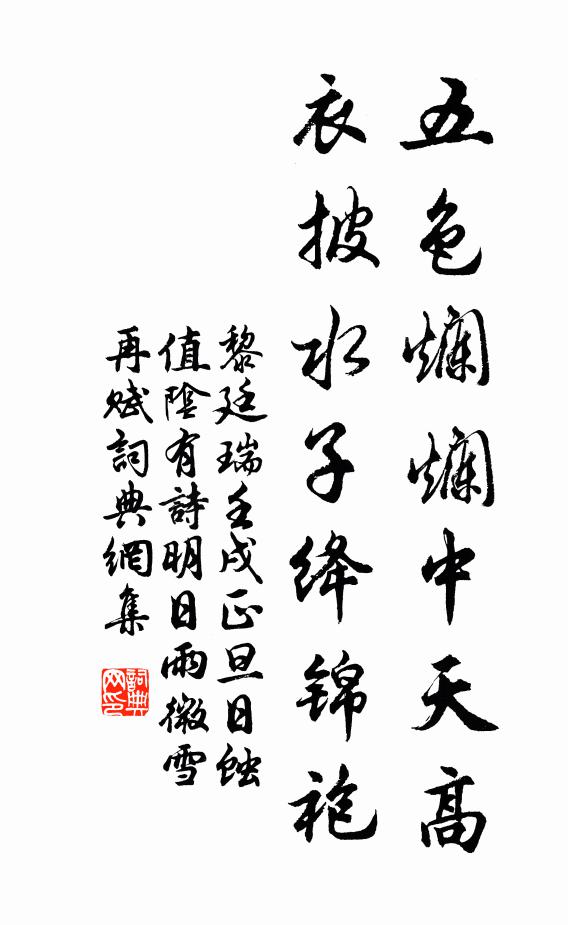 五色爛爛中天高
衣披水子绛锦袍
黎廷瑞壬戌正旦日蝕
值陰有詩明日雨微雪
再赋詞典網集
詞典网印